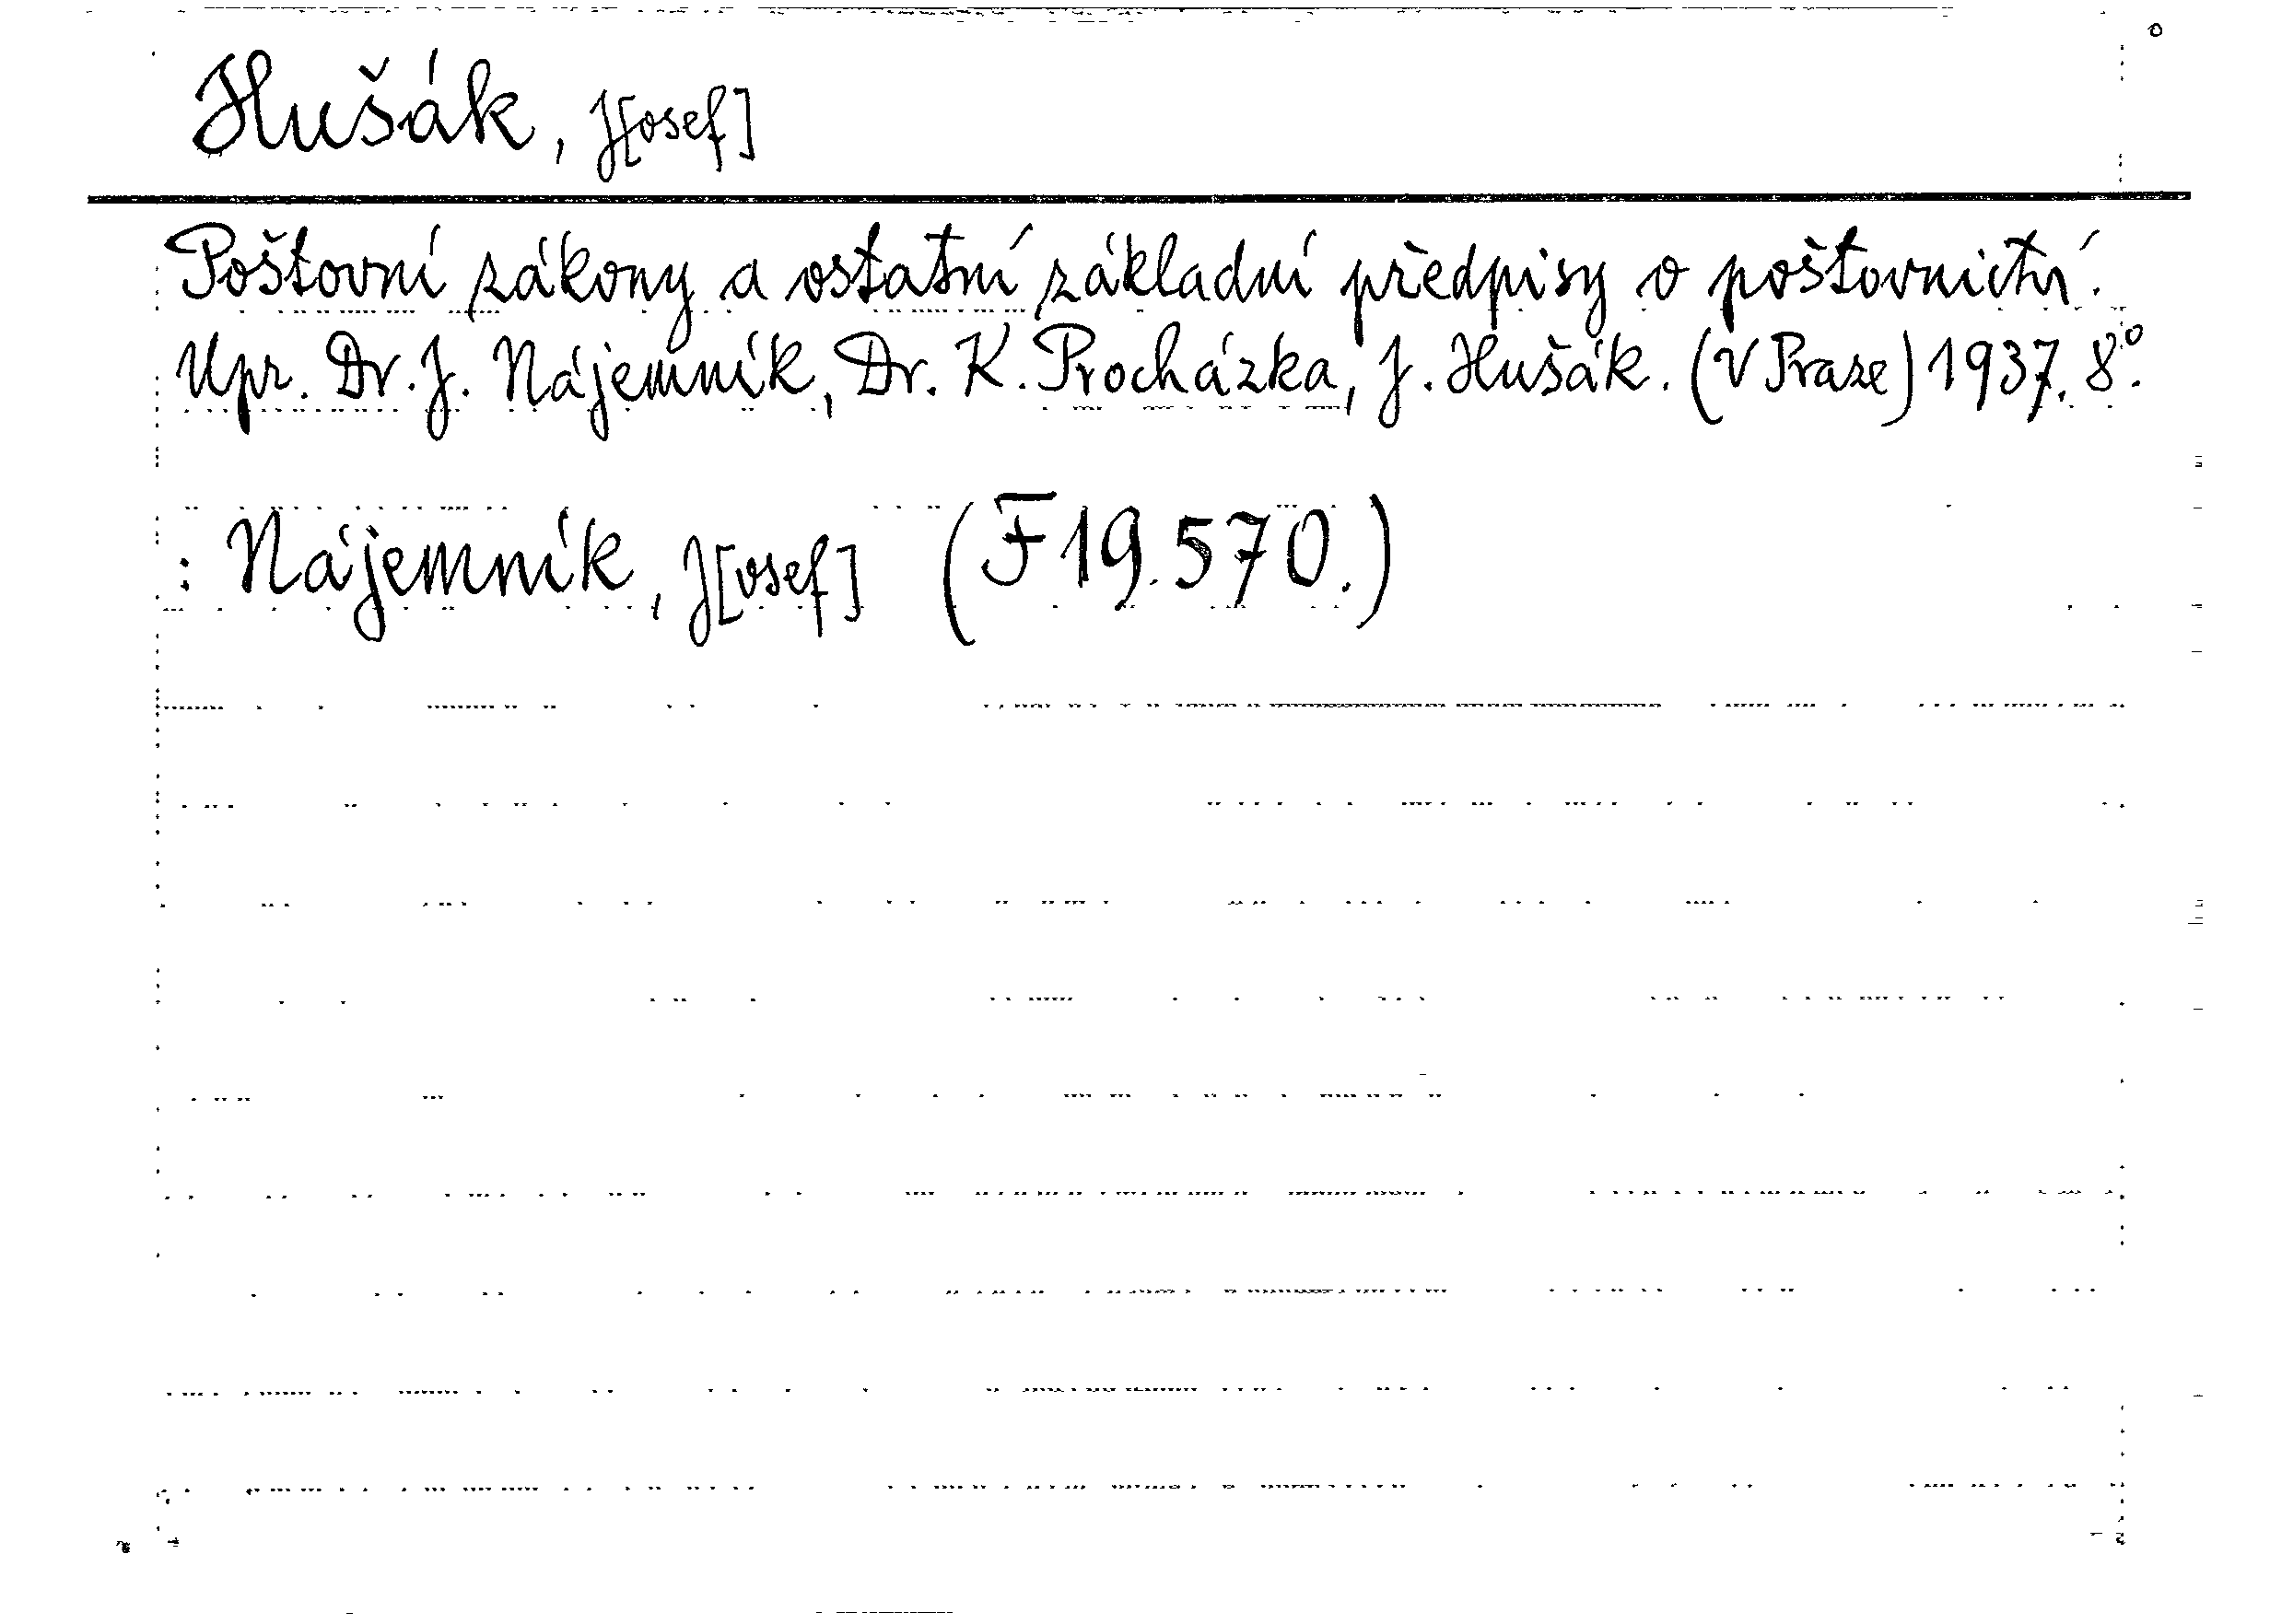 Hušák, J[osef]
Poštovní zákony a ostatní základní předpisy o poštovnictví.
Upr. Dr. J. Nájemník, Dr. K. Procházka, J. Hušák. (V Praze) 1937. 8°.
: Nájemník, J[osef] (F 19.570.)